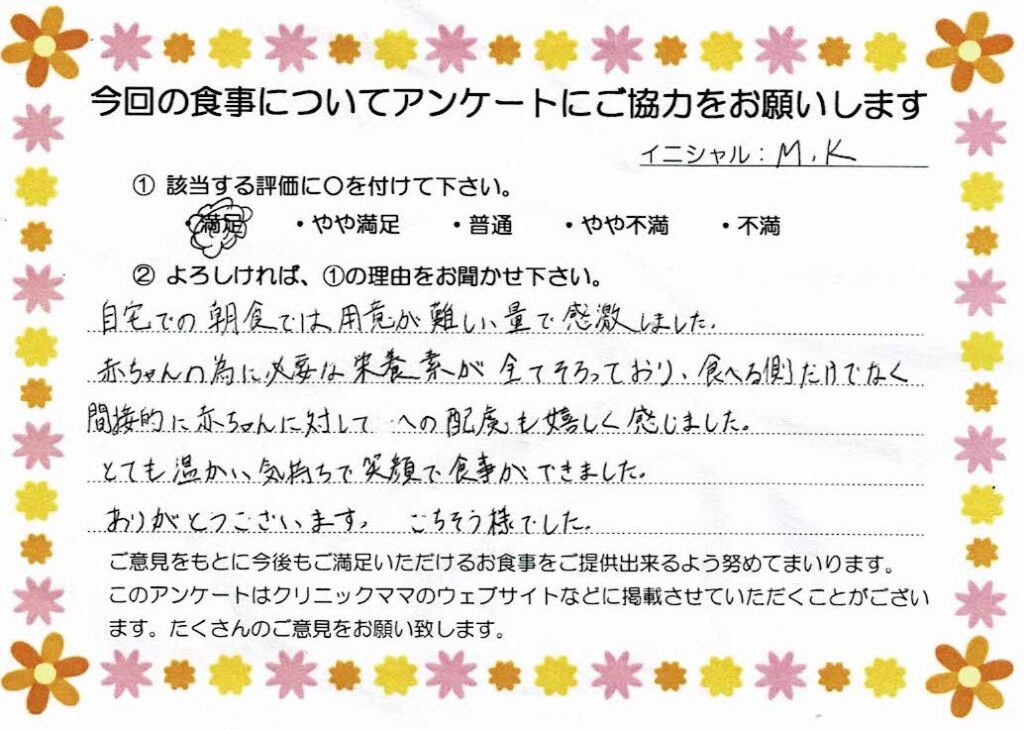 今回の食事についてアンケートにご協力をお願いします
イニシャル：M.K
① 該当する評価に〇を付けて下さい。
・満足 ・やや満足 ・普通 ・やや不満 ・不満
② よろしければ、①の理由をお聞かせ下さい。
自宅での朝食では用意が難しい量で感激しました。
赤ちゃんの為に必要な栄養素が全てそろっており、食べる側だけでなく
間接的に赤ちゃんに対して への配慮も嬉しく感じました。
とても温かい気持ちで笑顔で食事ができました。
ありがとうございます。 ごちそう様でした。
ご意見をもとに今後もご満足いただけるお食事をご提供出来るよう努めてまいります。
このアンケートはクリニックママのウェブサイトなどに掲載させていただくことがござい
ます。たくさんのご意見をお願い致します。